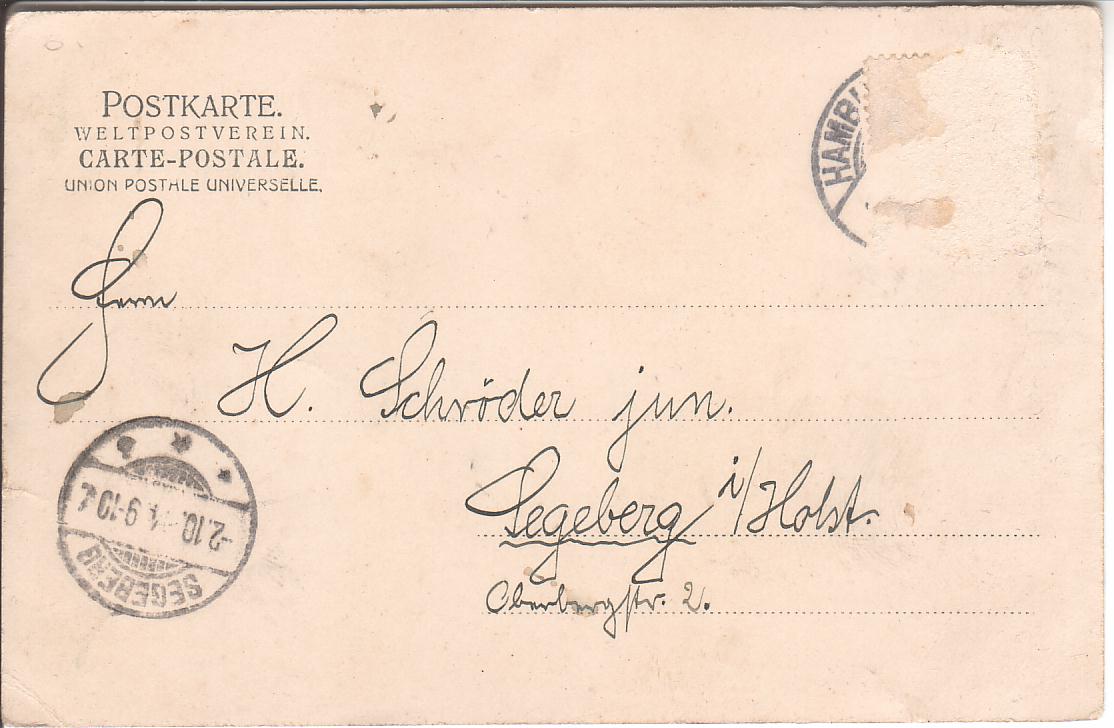 POSTKARTE.
WELTPOSTVEREIN.
CARTE-POSTALE.
UNION POSTALE UNIVERSELLE.
HAMBU
Herrn
H. Schröder jun.
Segeberg i/Holst.
Oberbergstr. 2.
SEGEBERG
9-10